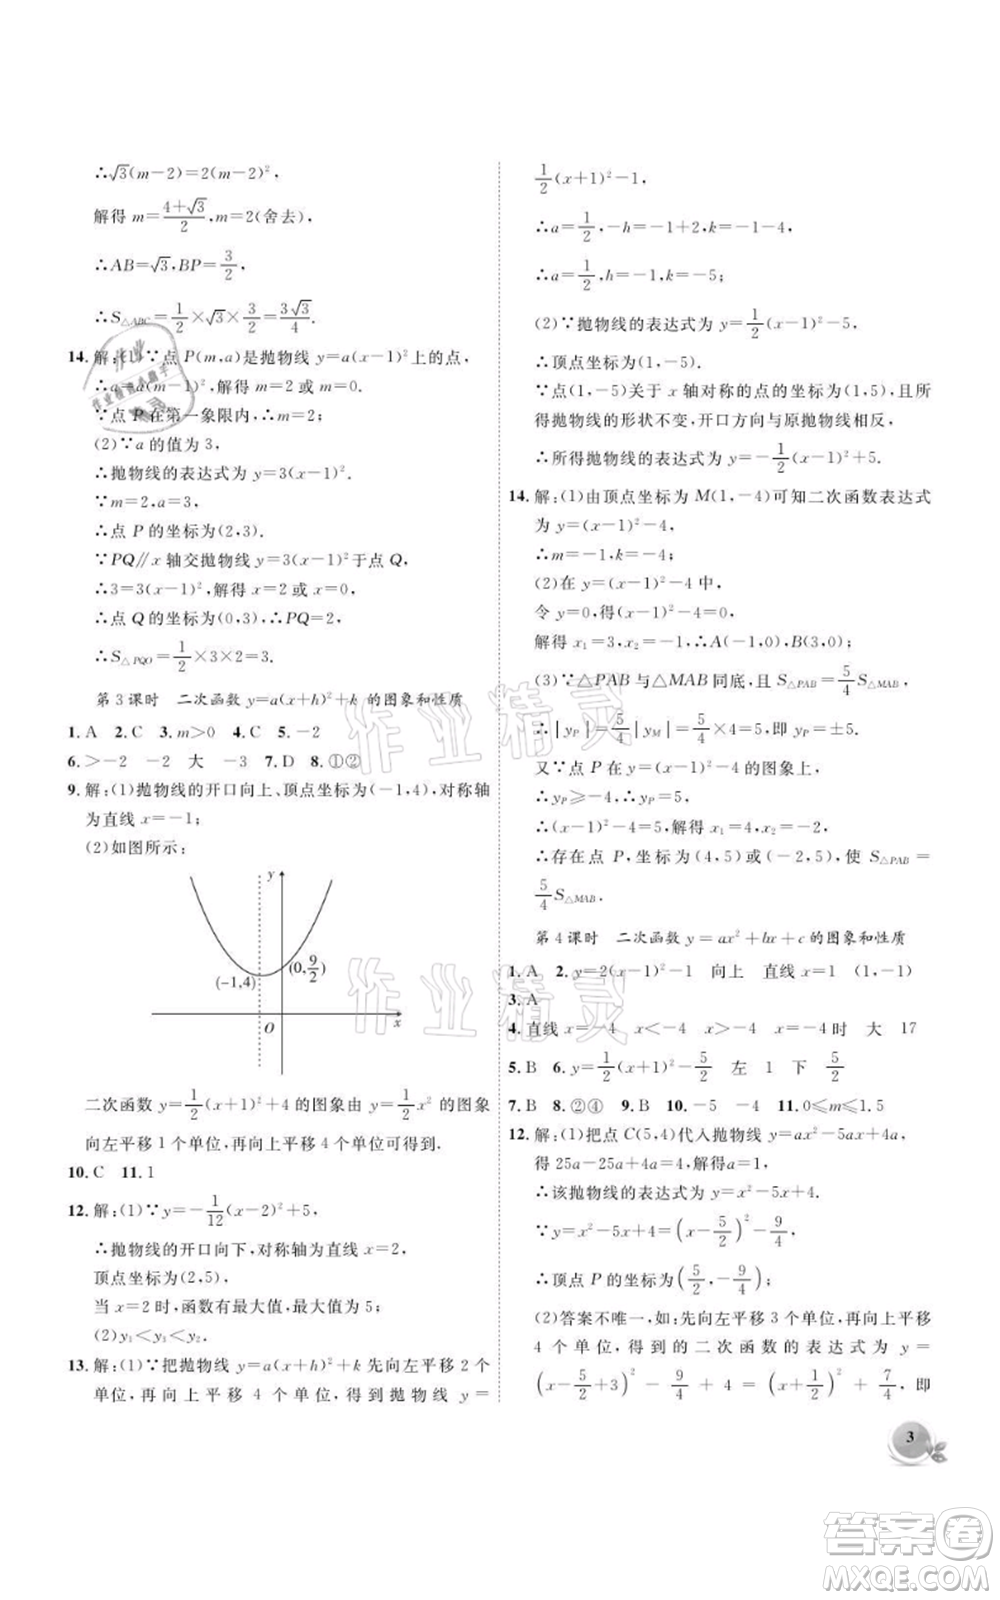 ∴√3(m-2)=2(m-2)²,
解得 m=(4+√3)/2,m=2(舍去),
∴AB=√3,BP=3/2,
∴S△ABC=1/2×√3×3/2=3√3/4.
14.解:(1)∵点 P(m,a)是抛物线 y=a(x-1)²上的点,
∴a=a(m-1)²,解得 m=2 或 m=0.
∵点 P 在第一象限内,∴m=2;
(2)∵a 的值为 3,
∴抛物线的表达式为 y=3(x-1)².
∵m=2,a=3,
∴点 P 的坐标为(2,3).
∵PQ∥x 轴交抛物线 y=3(x-1)²于点 Q,
∴3=3(x-1)²,解得 x=2 或 x=0,
∴点 Q 的坐标为(0,3),∴PQ=2,
∴S△PQO=1/2×3×2=3.
第 3 课时 二次函数 y=a(x+h)²+k 的图象和性质
1.A 2.C 3.m>0 4.C 5.-2
6.>-2 -2 大 -3 7.D 8.①②
9.解:(1)抛物线的开口向上、顶点坐标为(-1,4),对称轴
为直线 x=-1;
(2)如图所示:
y
(0,9/2)
(-1,4)
O
x
二次函数 y=1/2(x+1)²+4 的图象由 y=1/2x² 的图象
向左平移 1 个单位,再向上平移 4 个单位可得到.
10.C 11.1
12.解:(1)∵y=-1/12(x-2)²+5,
∴抛物线的开口向下,对称轴为直线 x=2,
顶点坐标为(2,5),
当 x=2 时,函数有最大值,最大值为 5;
(2)y₁<y₃<y₂.
13.解:(1)∵把抛物线 y=a(x+h)²+k 先向左平移 2 个
单位,再向上平移 4 个单位,得到抛物线 y=
1/2(x+1)²-1,
∴a=1/2,-h=-1+2,k=-1-4,
∴a=1/2,h=-1,k=-5;
(2)∵抛物线的表达式为 y=1/2(x-1)²-5,
∴顶点坐标为(1,-5).
∵点(1,-5)关于 x 轴对称的点的坐标为(1,5),且所
得抛物线的形状不变,开口方向与原抛物线相反,
∴所得抛物线的表达式为 y=-1/2(x-1)²+5.
14.解:(1)由顶点坐标为 M(1,-4)可知二次函数表达式
为 y=(x-1)²-4,
∴m=-1,k=-4;
(2)在 y=(x-1)²-4 中,
令 y=0,得(x-1)²-4=0,
解得 x₁=3,x₂=-1,∴A(-1,0),B(3,0);
(3)∵△PAB 与△MAB 同底,且 S△PAB=5/4S△MAB,
∴|yP|=5/4|yM|=5/4×4=5,即 yP=±5.
又∵点 P 在 y=(x-1)²-4 的图象上,
∴yP≥-4,∴yP=5,
∴(x-1)²-4=5,解得 x₁=4,x₂=-2,
∴存在点 P,坐标为(4,5)或(-2,5),使 S△PAB=
5/4S△MAB.
第 4 课时 二次函数 y=ax²+bx+c 的图象和性质
1.A 2.y=2(x-1)²-1 向上 直线 x=1 (1,-1)
3.A
4.直线 x=-4 x<-4 x>-4 x=-4 时 大 17
5.B 6.y=1/2(x+1)²-5/2 左 1 下 5/2
7.B 8.②④ 9.B 10.-5 -4 11.0≤m≤1.5
12.解:(1)把点 C(5,4)代入抛物线 y=ax²-5ax+4a,
得 25a-25a+4a=4,解得a=1,
∴该抛物线的表达式为 y=x²-5x+4.
∵y=x²-5x+4=(x-5/2)²-9/4,
∴顶点 P 的坐标为(5/2,-9/4);
(2)答案不唯一,如:先向左平移 3 个单位,再向上平移
4 个单位,得到的二次函数的表达式为 y=
(x-5/2+3)²-9/4+4=(x+1/2)²+7/4,即
3
作业精灵
作业精灵
答案卷
MXQE.COM